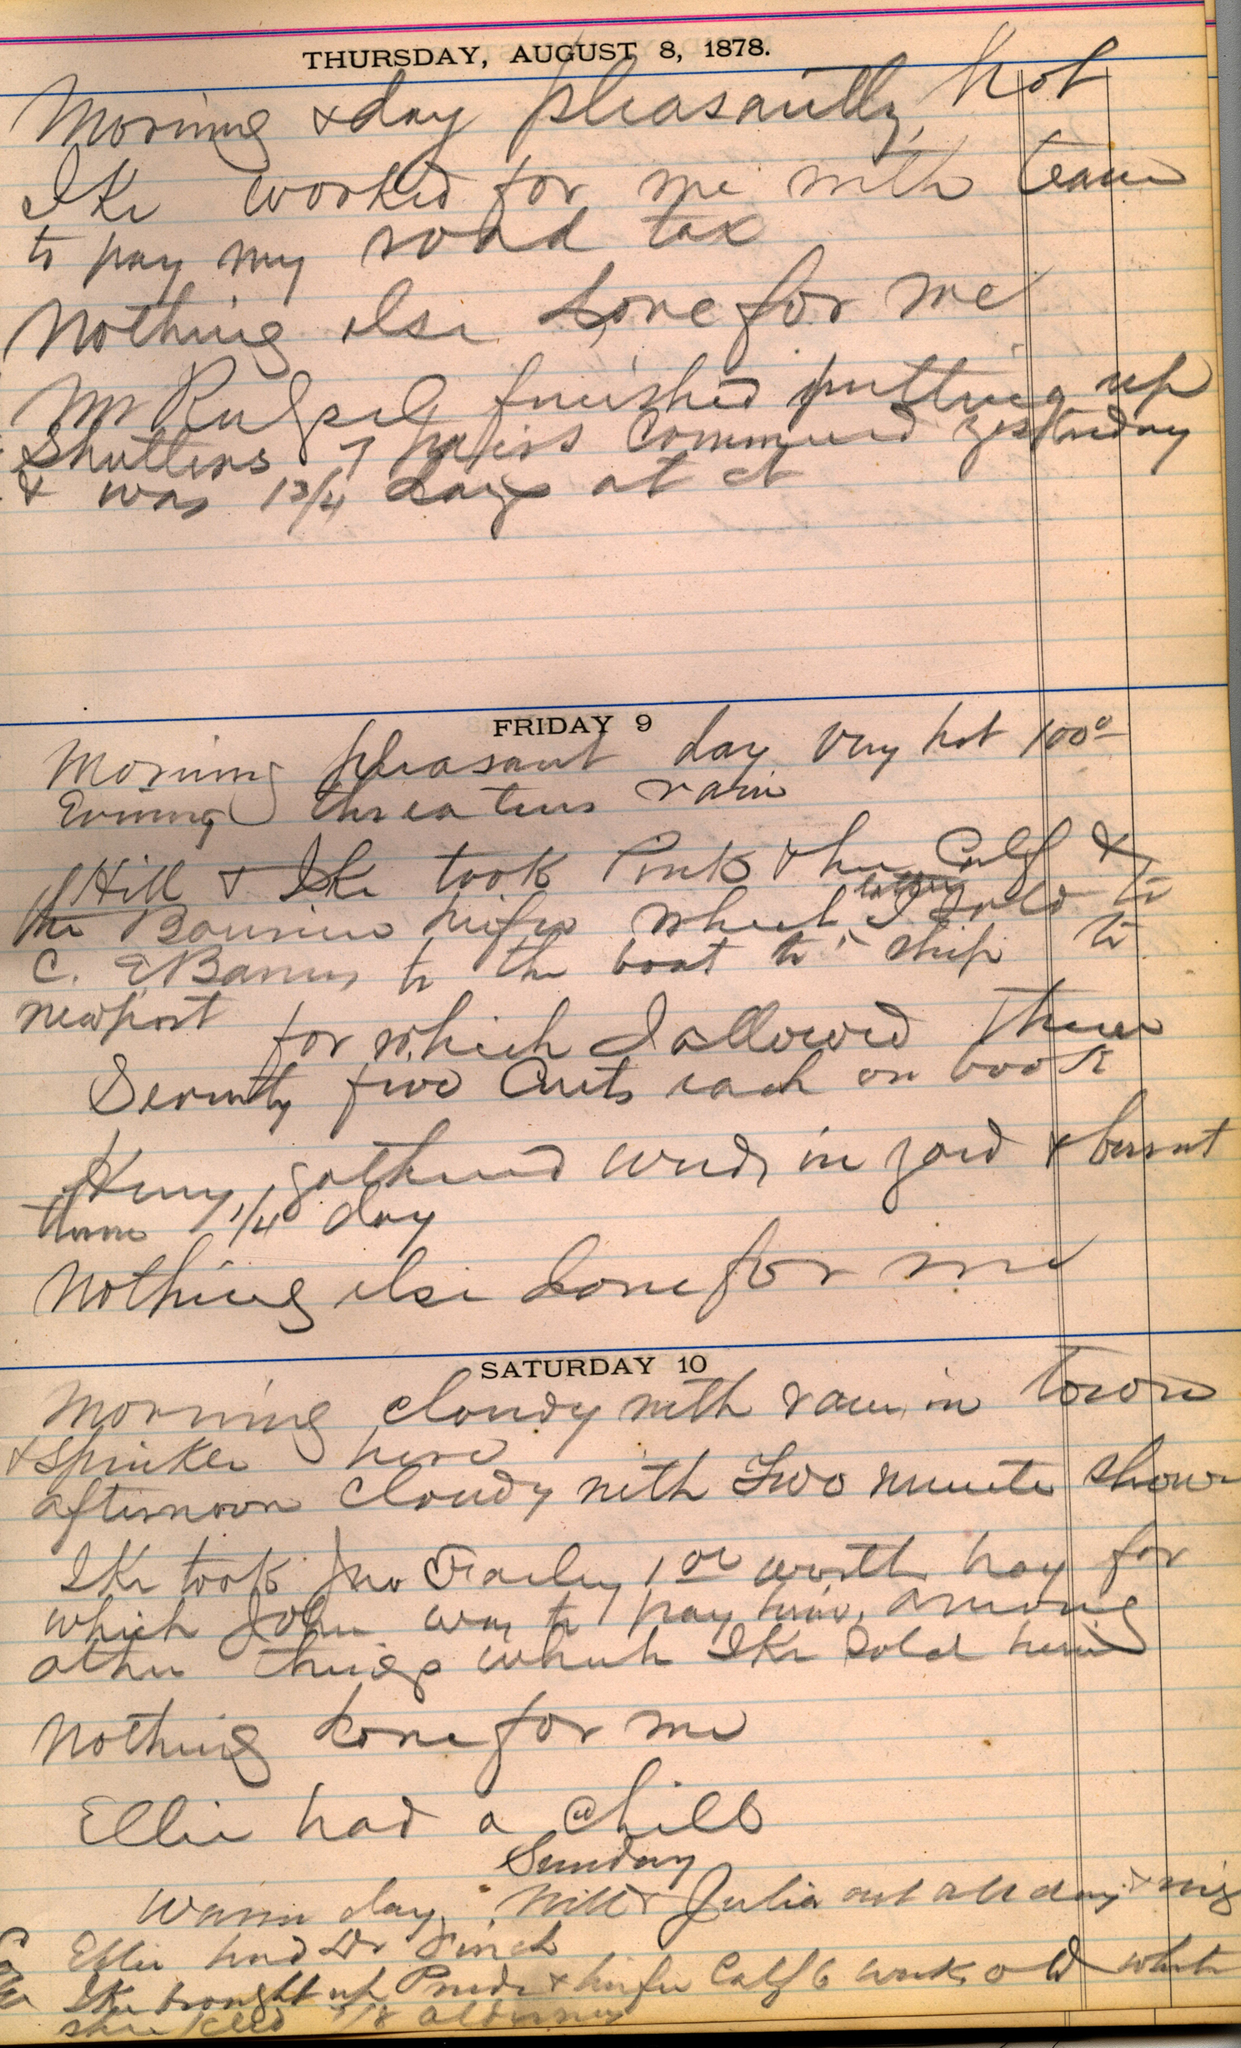 THURSDAY, AUGUST 8, 1878.
Morning & day pleasantly hot
Ike worked for me with team
to pay my road tax
Nothing else done for me
Mr finished putting up
Shutters 7 pairs Commenced yesterday
& was 1 3/4 days at it
FRIDAY 9
Morning pleasant day very hot 100°
Evening threatens rain
Hill & Ike took Pink & her Calf &
the heifer which latter I sold to
C. E Barnes to the boat to ship to
Newport
for which I allowed them
Seventy five Cents each on book
Henry gathered weeds in yard & burnt
them 1/4 day
Nothing else done for me
SATURDAY 10
Morning cloudy with rain in town
& sprinkle here
afternoon cloudy with Two minute shower
Ike took Jno 1 00 worth hay for
which John was to pay him, among
other things which Ike sold him
Nothing done for me
Ellie had a chill
Sunday
Warm day. Will & Julia out all day &
Ellie had Dr Finch
Ike brought up & heifer Calf 6 weeks old which
she 7/8 alderney